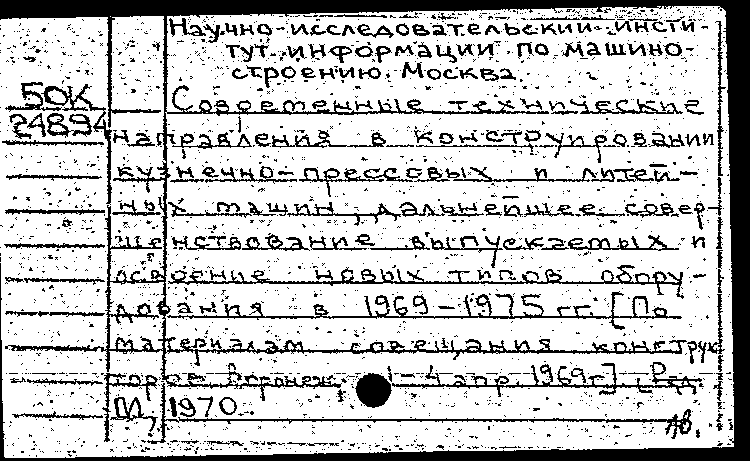 Научно-исследовательский инсти-
тут информации по машино-
строению. Москва
50К
Современные технические
24894
направления в конструировании
кузнечно-прессовых и литей-
ных машин, дальнейшее совер-
шенствование выпускаемых и
освоение новых типов обору-
дования в 1969-1975 гг. [По
материалам совещания конструк
торов Воронеж, 1-4 апр. 1969г] [Ред.
М., 1970.